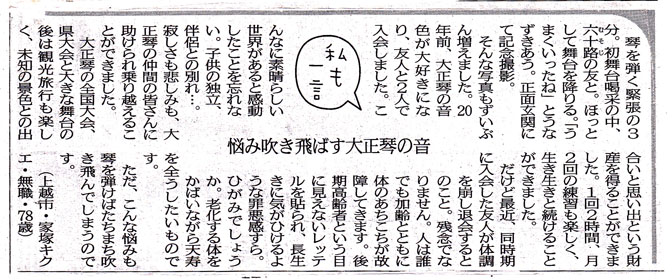 私も一言
悩み吹き飛ばす大正琴の音
琴を弾く緊張の３
分。初舞台喝采の中、
六十路の友と、ほっと
して舞台を降りる。「う
まくいったね」とうな
ずきあう。正面玄関に
て記念撮影。
そんな写真もずいぶ
ん増えました。20
年前、大正琴の音
色が大好きにな
り、友人と２人で
入会しました。こ
んなに素晴らしい
世界があると感動
したことを忘れな
い。子供の独立、
伴侶との別れ…。
寂しさも悲しみも、大
正琴の仲間の皆さんに
助けられ乗り越えるこ
とができました。
大正琴の全国大会、
県大会と大きな舞台の
後は観光旅行も楽し
く、未知の景色との出
合いと思い出という財
産を得ることができま
した。１回２時間、月
２回の練習も楽しく、
生き生きと続けること
ができました。
だけど最近、同時期
に入会した友人が体調
を崩し退会するとの
こと。残念でな
りません。人は誰
でも加齢とともに
体のあちこちが故
障してきます。後
期高齢者という目
に見えないレッテ
ルを貼られ、長生
きに気がひけるよ
うな罪悪感すら。
ひがみでしょう
か。老化する体を
かばいながら天寿
を全うしたいもので
す。
ただ、こんな悩みも
琴を弾けばたちまち吹
き飛んでしまうので
す。
（上越市・家塚キク
エ・無職・78歳）